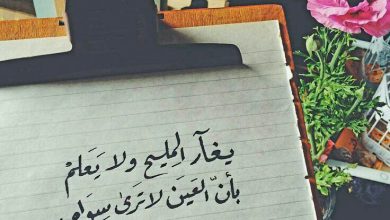 يغآر المليح ولا يَعلمْ
بأنّ العَينَ لا تَرىٰ سِواه